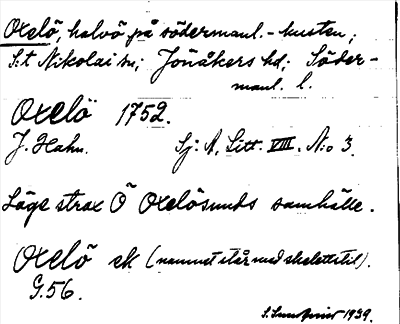 Oxelö, halvö på södermanl.-kusten;
S:t Nikolai sn; Jönåkers hd; Söder-
manl. l.
Oxelö 1752.
J. Hahn. Sj: A, Litt. VIII. N:o 3.
Läge strax Ö Oxelösunds samhälle.
Oxelö ek (namnet står med skelettstil).
G.56.
1939.